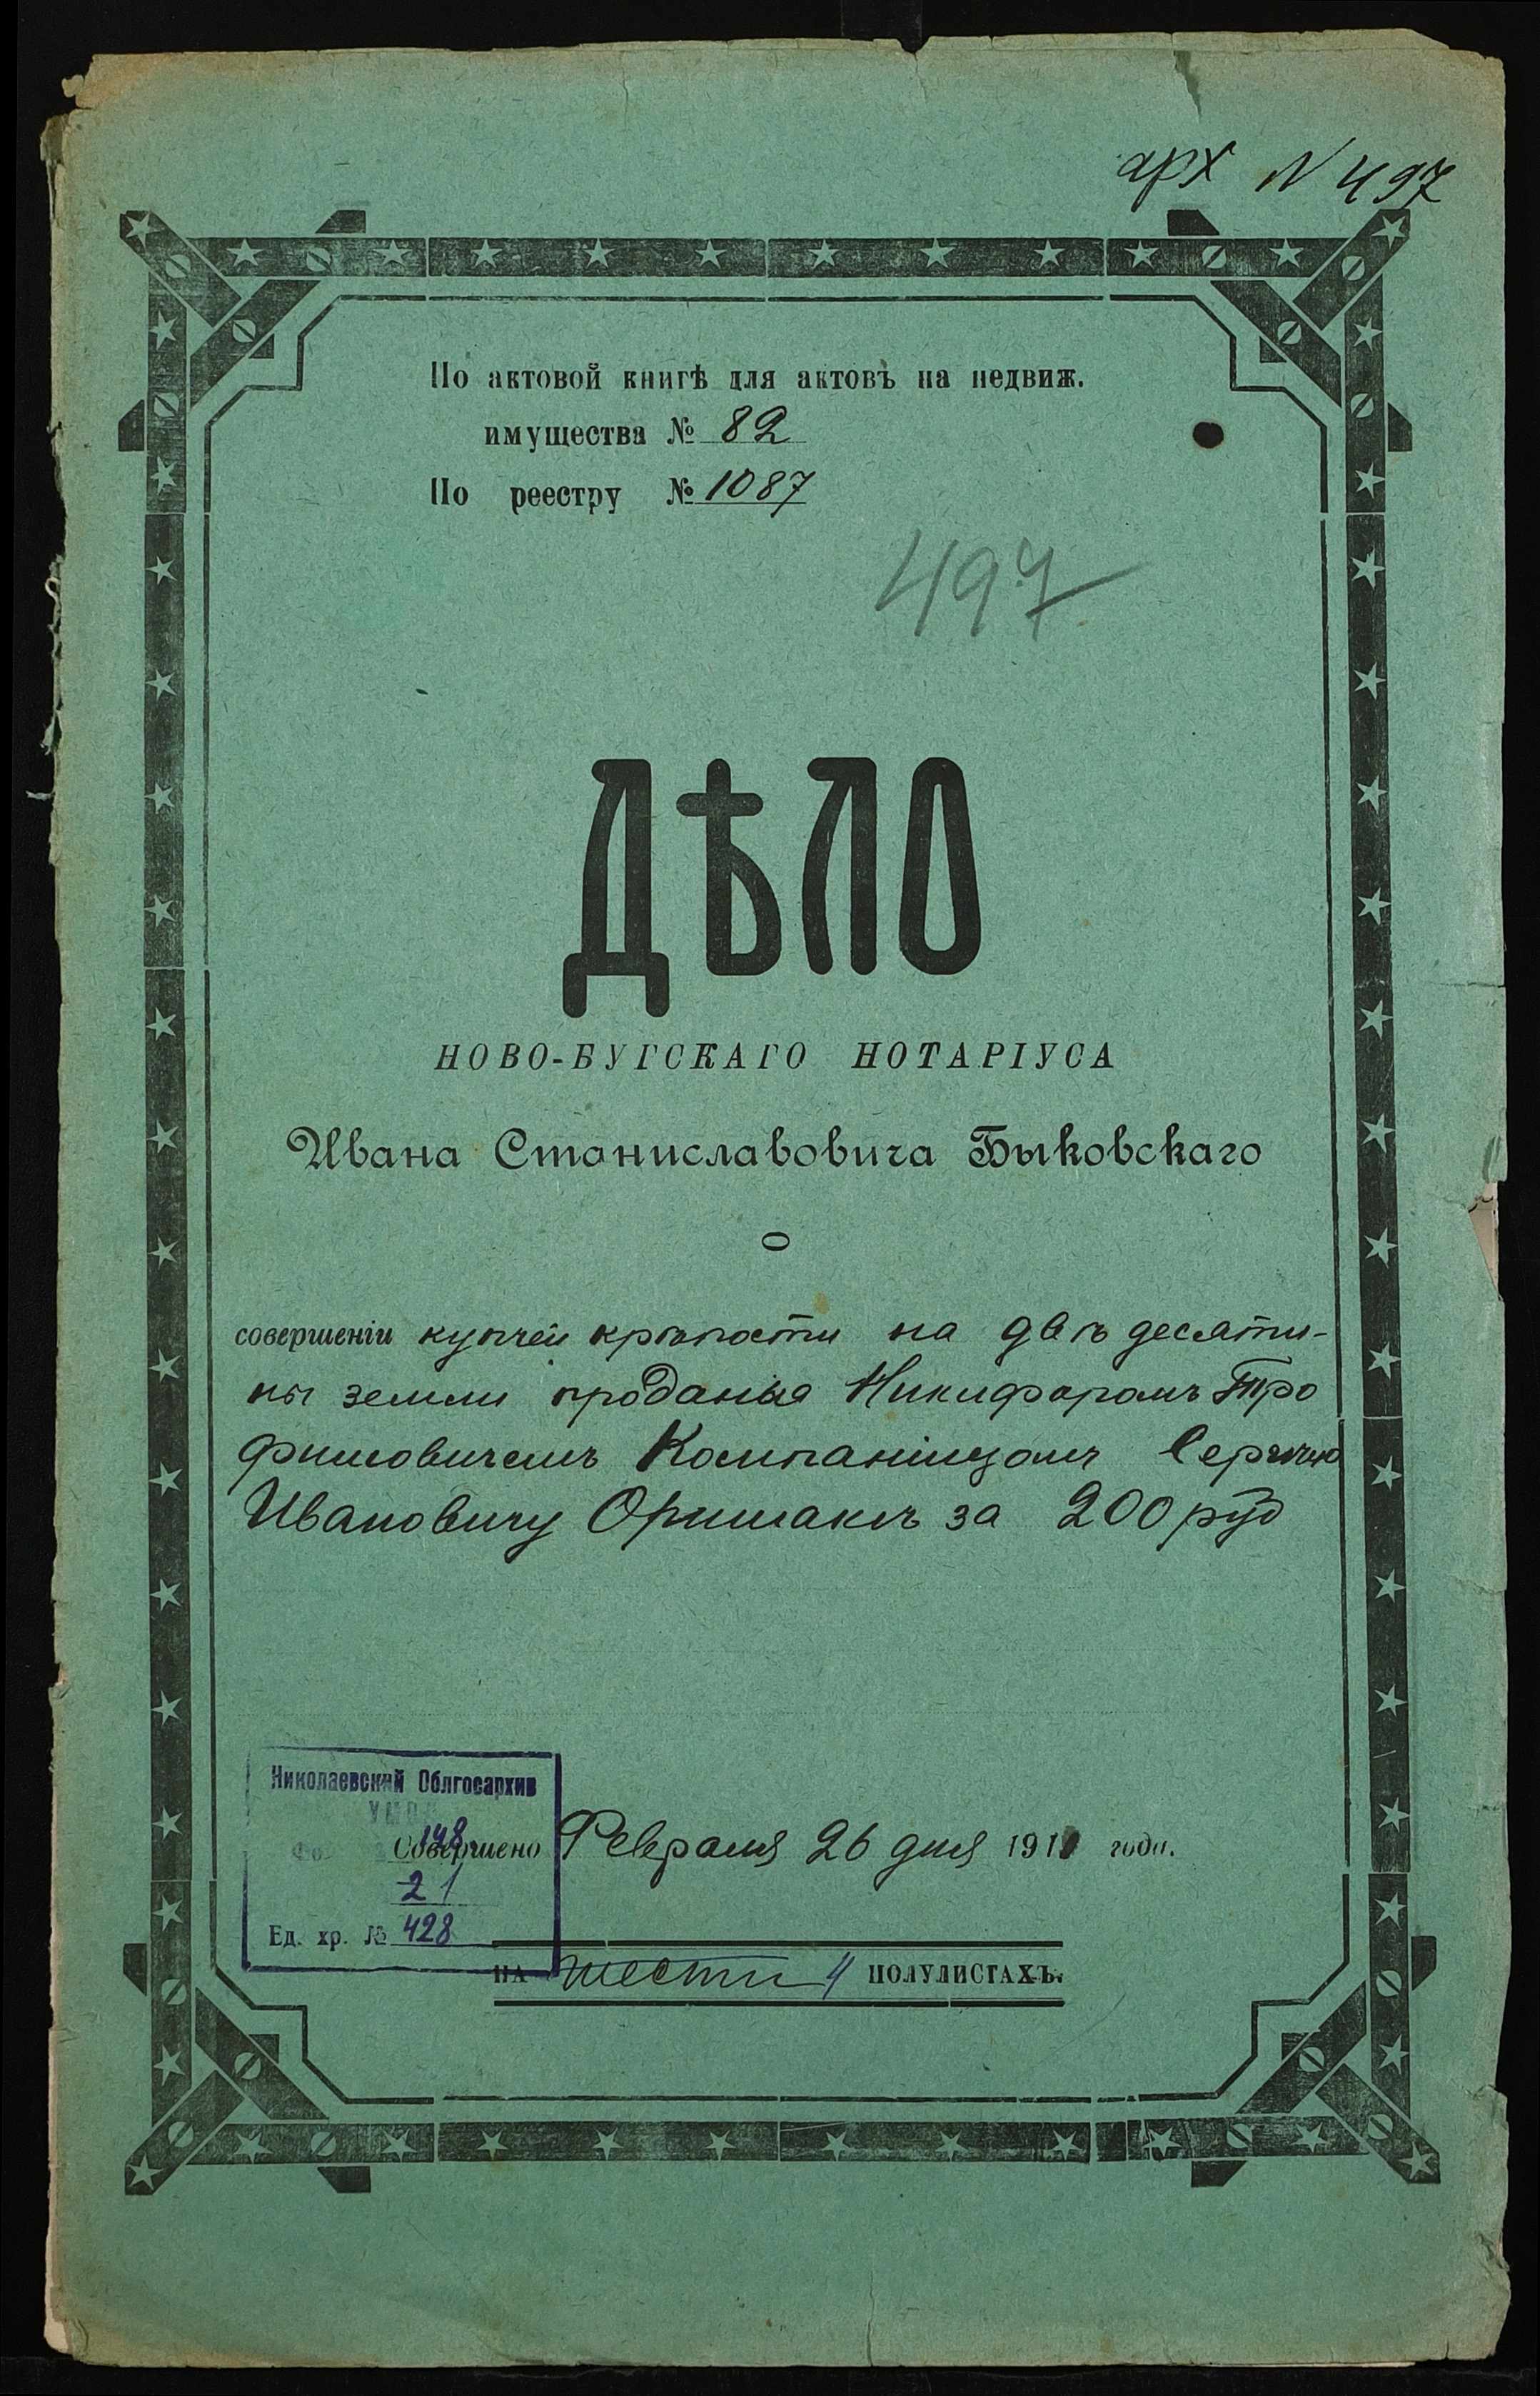 арх N 497
По актовой книгѣ для актовъ на недвиж.
имущества № 82
По реестру № 1087
497
ДѢЛО
НОВО-БУГСКАГО НОТАРІУСА
Ивана Станиславовича Быковскаго
О
совершеніи купчей крѣпости на двѣ десяти-
ны земли проданыя Никифоромъ Тро
фимовичемъ Компанійцомъ Сергѣю
Ивановичу за 200 руб
Николаевский Облгосархив
148
Совершено Февраля 26 дня 191 года.
21
Ед. хр. № 428
НА шести 4 ПОЛУЛИСТАХЪ.